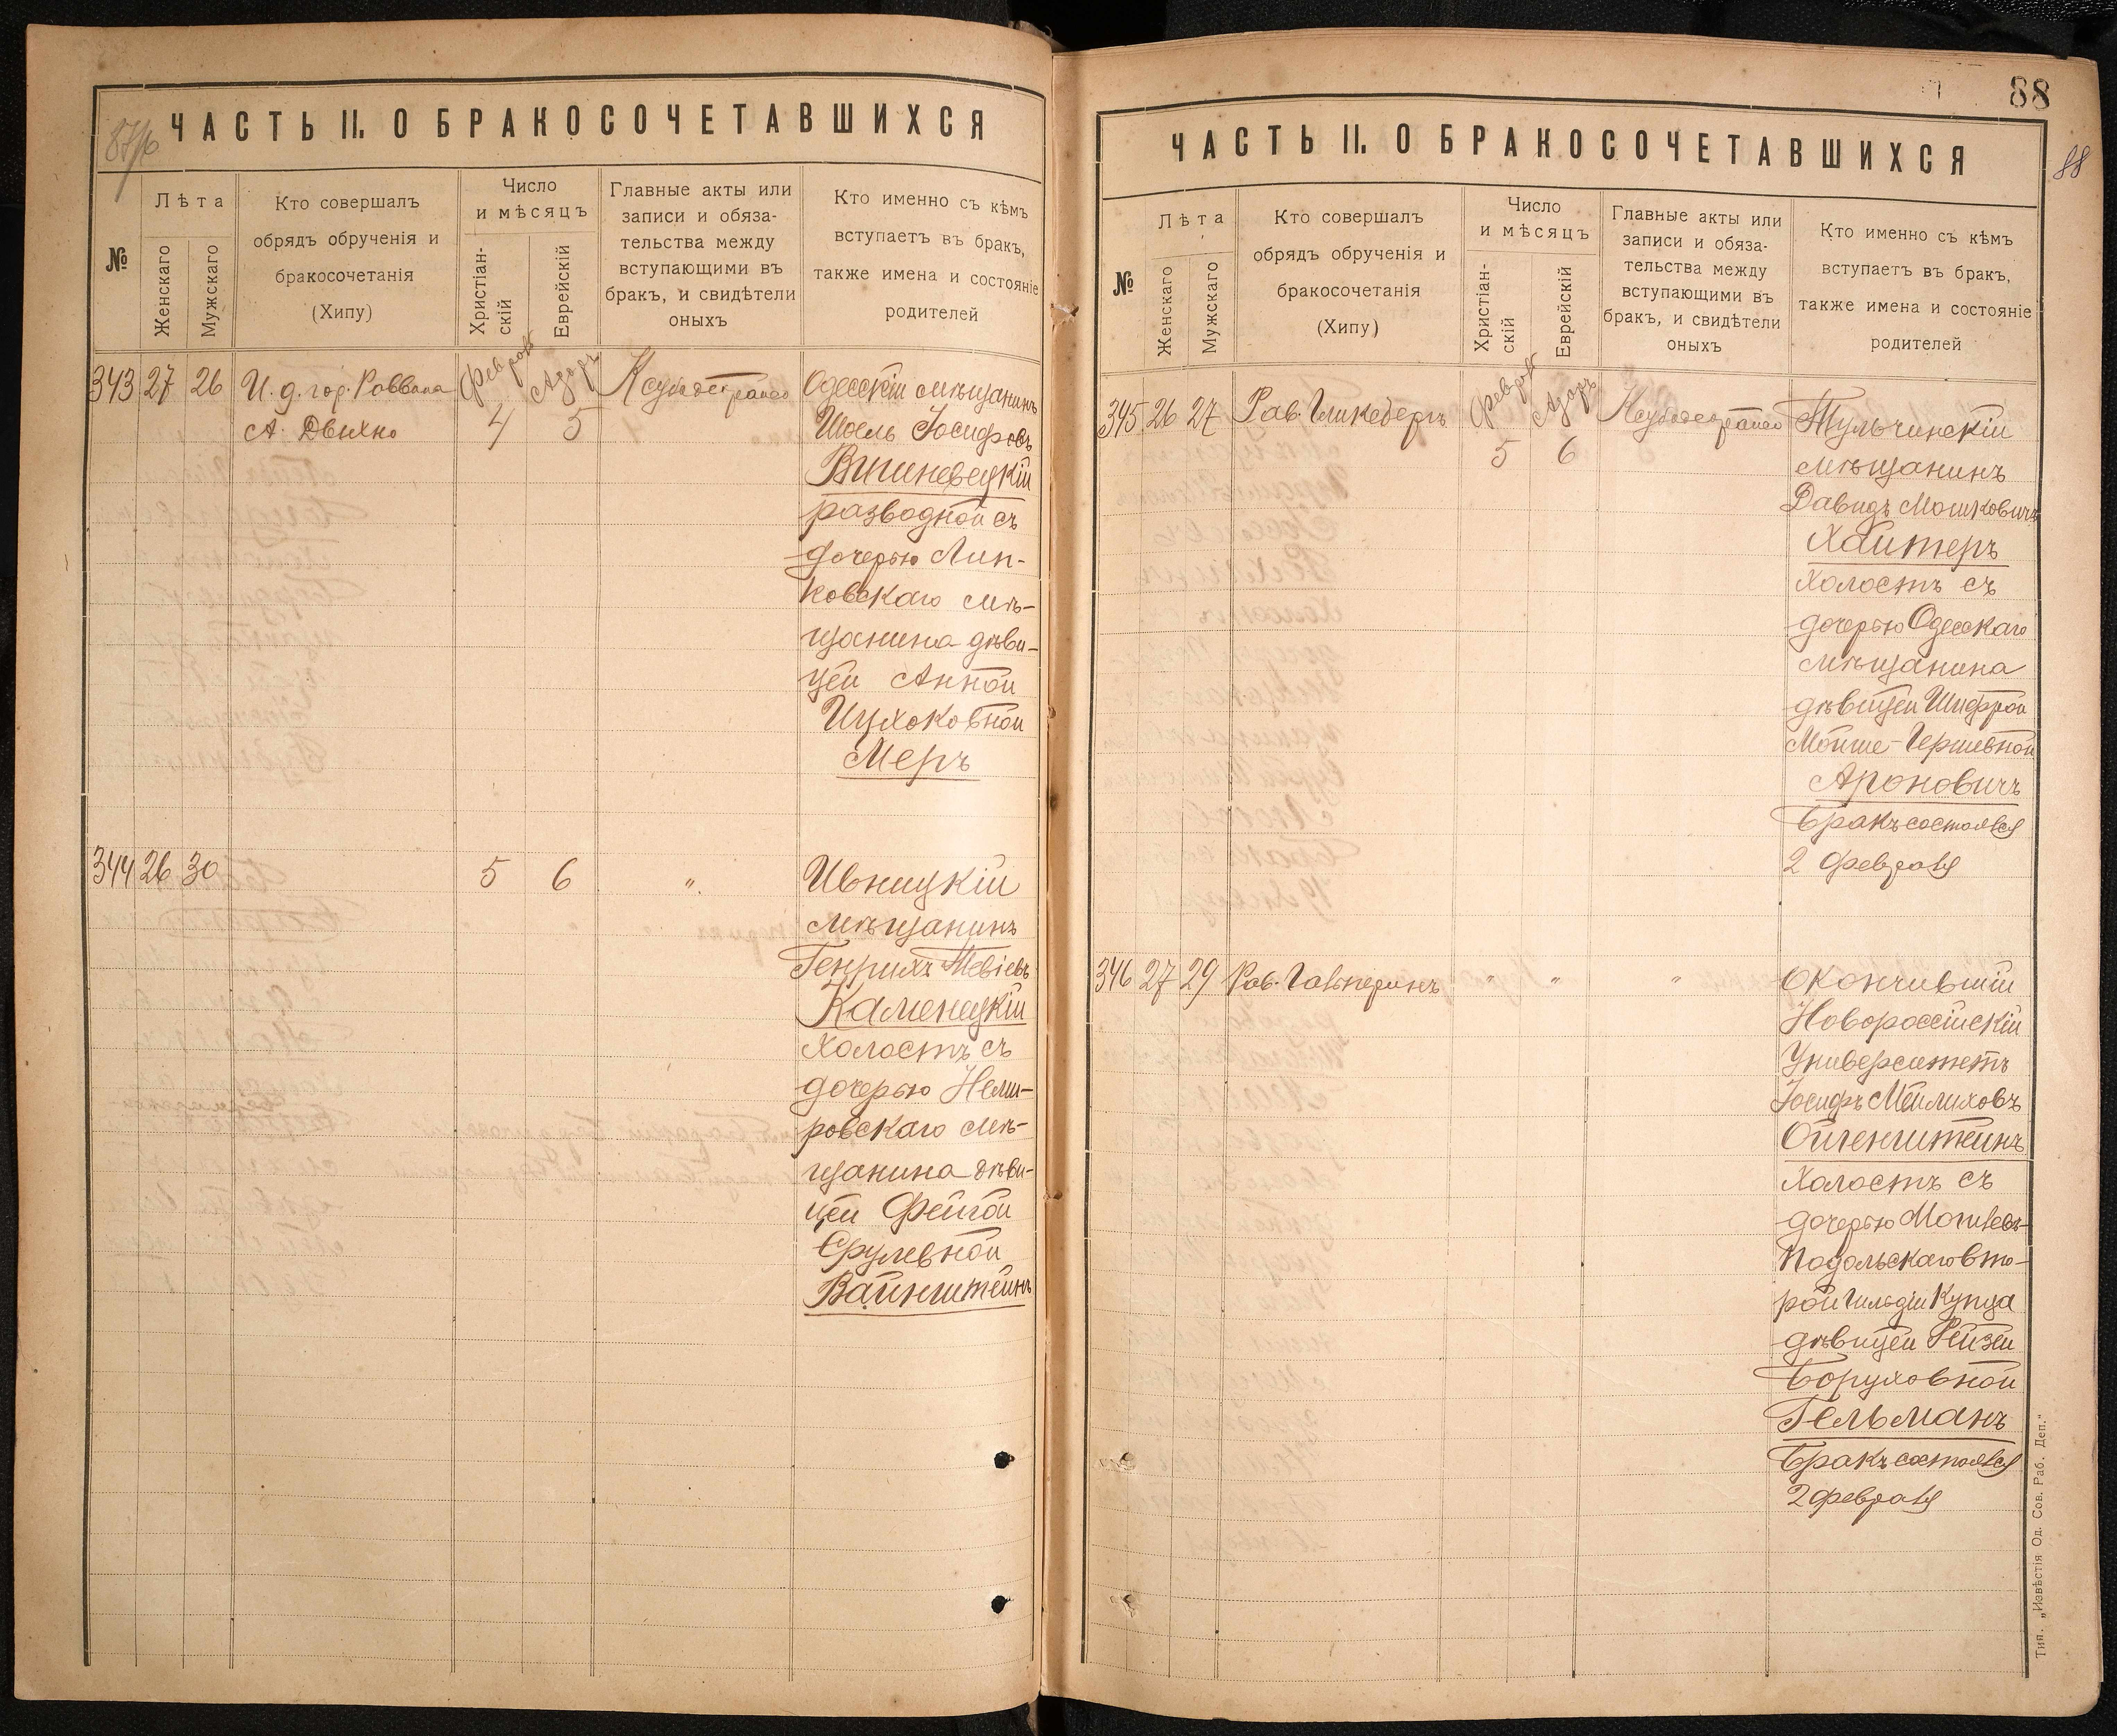 87/б
ЧАСТЬ II. О БРАКОСОЧЕТАВШИХСЯ
№
Лѣта
Женскаго
Мужскаго
Кто совершалъ
обрядъ обрученія и
бракосочетанія
(Хипу)
Число
и мѣсяцъ
Христіан-
скій
Еврейскій
Главные акты или
записи и обяза-
тельства между
вступающими въ
бракъ, и свидѣтели
оныхъ
Кто именно съ кѣмъ
вступаетъ въ бракъ,
также имена и состояніе
родителей
343 27 26 И. д. гор. Раввина
А. Двихно
Февраль 4
Адаръ 5
Одесскій мѣщанинъ
Шоель Іосифовъ
Вишневецкій
разводной съ
дочерью Лип-
ковскаго мѣ-
щанина дѣви-
цей Анной
Ицхоковной
Меръ
344 26 30 5 6 "
Ивницкій
мѣщанинъ
Генрихъ Тевіевъ
Каменецкій
Холостъ съ
дочерью Неми-
ровскаго мѣ-
щанина дѣви-
цей Фейгой
Срулевной
Вайнштейнъ
88
88
ЧАСТЬ II. О БРАКОСОЧЕТАВШИХСЯ
№
Лѣта
Женскаго
Мужскаго
Кто совершалъ
обрядъ обрученія и
бракосочетанія
(Хипу)
Число
и мѣсяцъ
Христіан-
скій
Еврейскій
Главные акты или
записи и обяза-
тельства между
вступающими въ
бракъ, и свидѣтели
оныхъ
Кто именно съ кѣмъ
вступаетъ въ бракъ,
также имена и состояніе
родителей
345 26 27 Рав. Гликсбергъ
Февраль 5
Адаръ 6
Тульчинскій
мѣщанинъ
Давидъ Мошковичъ
Хаитеръ
Холостъ съ
дочерью Одесскаго
мѣщанина
дѣвицей Шифрой
Мойше-Гершевной
Ароновичъ
Бракъ состоялся
2 февраля
346 27 29 Рав. Гальперинъ " " "
Окончившій
Новороссійскій
Университетъ
Іосифъ Мейлиховъ
Ойгенштейнъ
Холостъ съ
дочерью Могилевъ-
Подольскаго вто-
рой гильдіи Купца
дѣвицей Рейзей
Боруховной
Гельманъ
Бракъ состоялся
2 февраля
Тип. „Извѣстія Од. Сов. Раб. Деп."